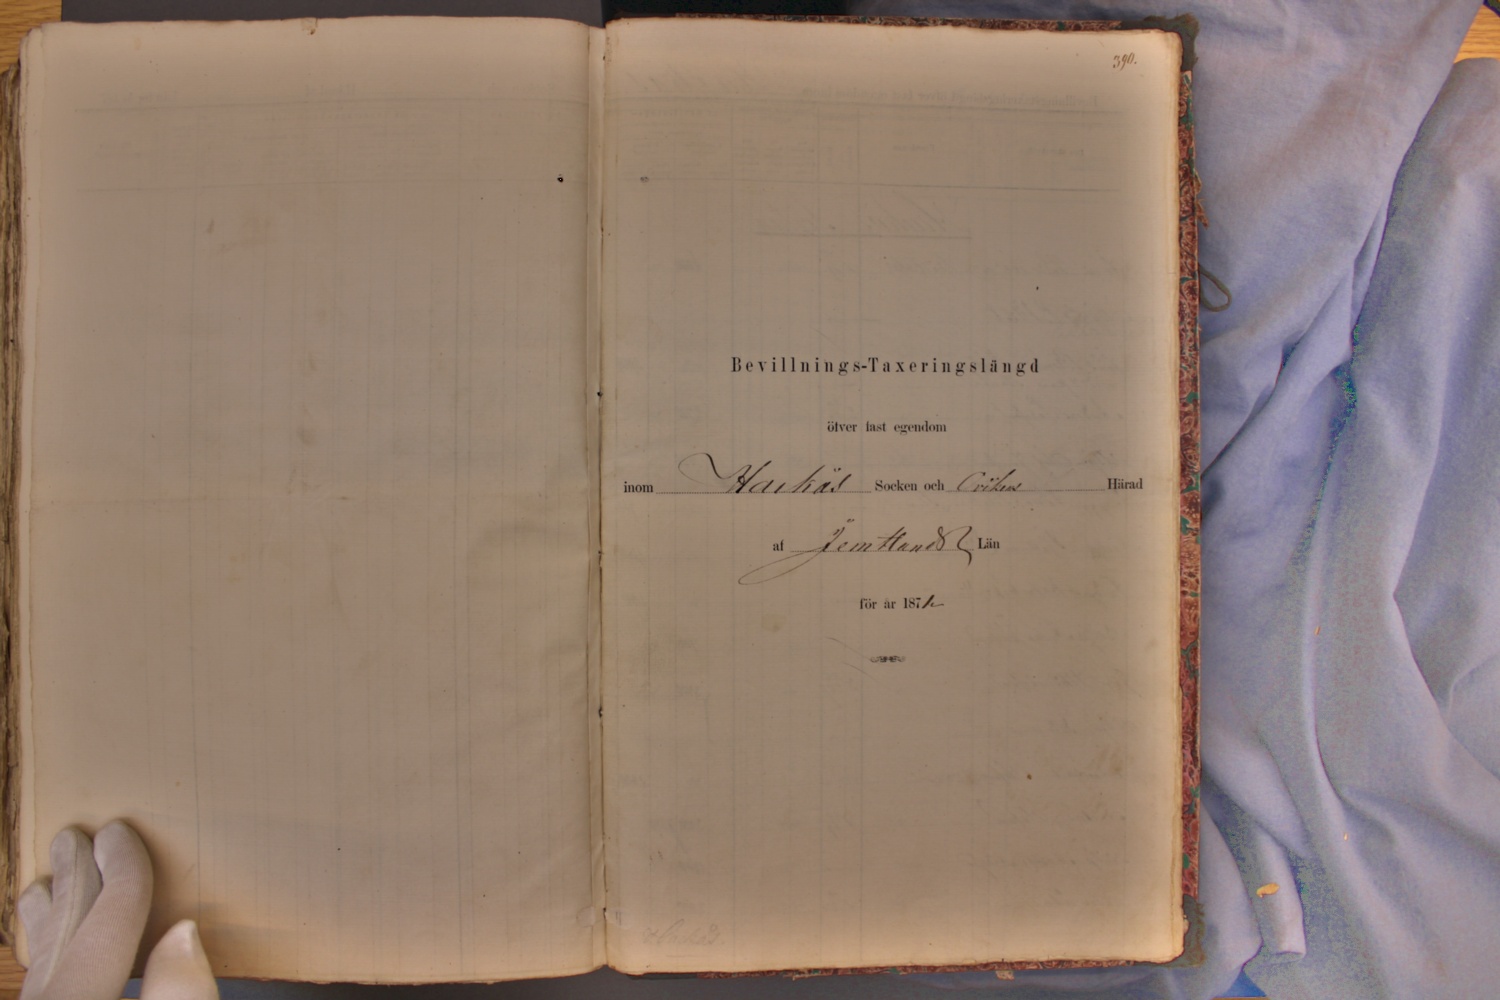 390.
Bevillnings-Taxeringslängd
öfver fast egendom
inom Hackås Socken och Oviken Härad
af Jemtlands Län
för år 187
Hackås.